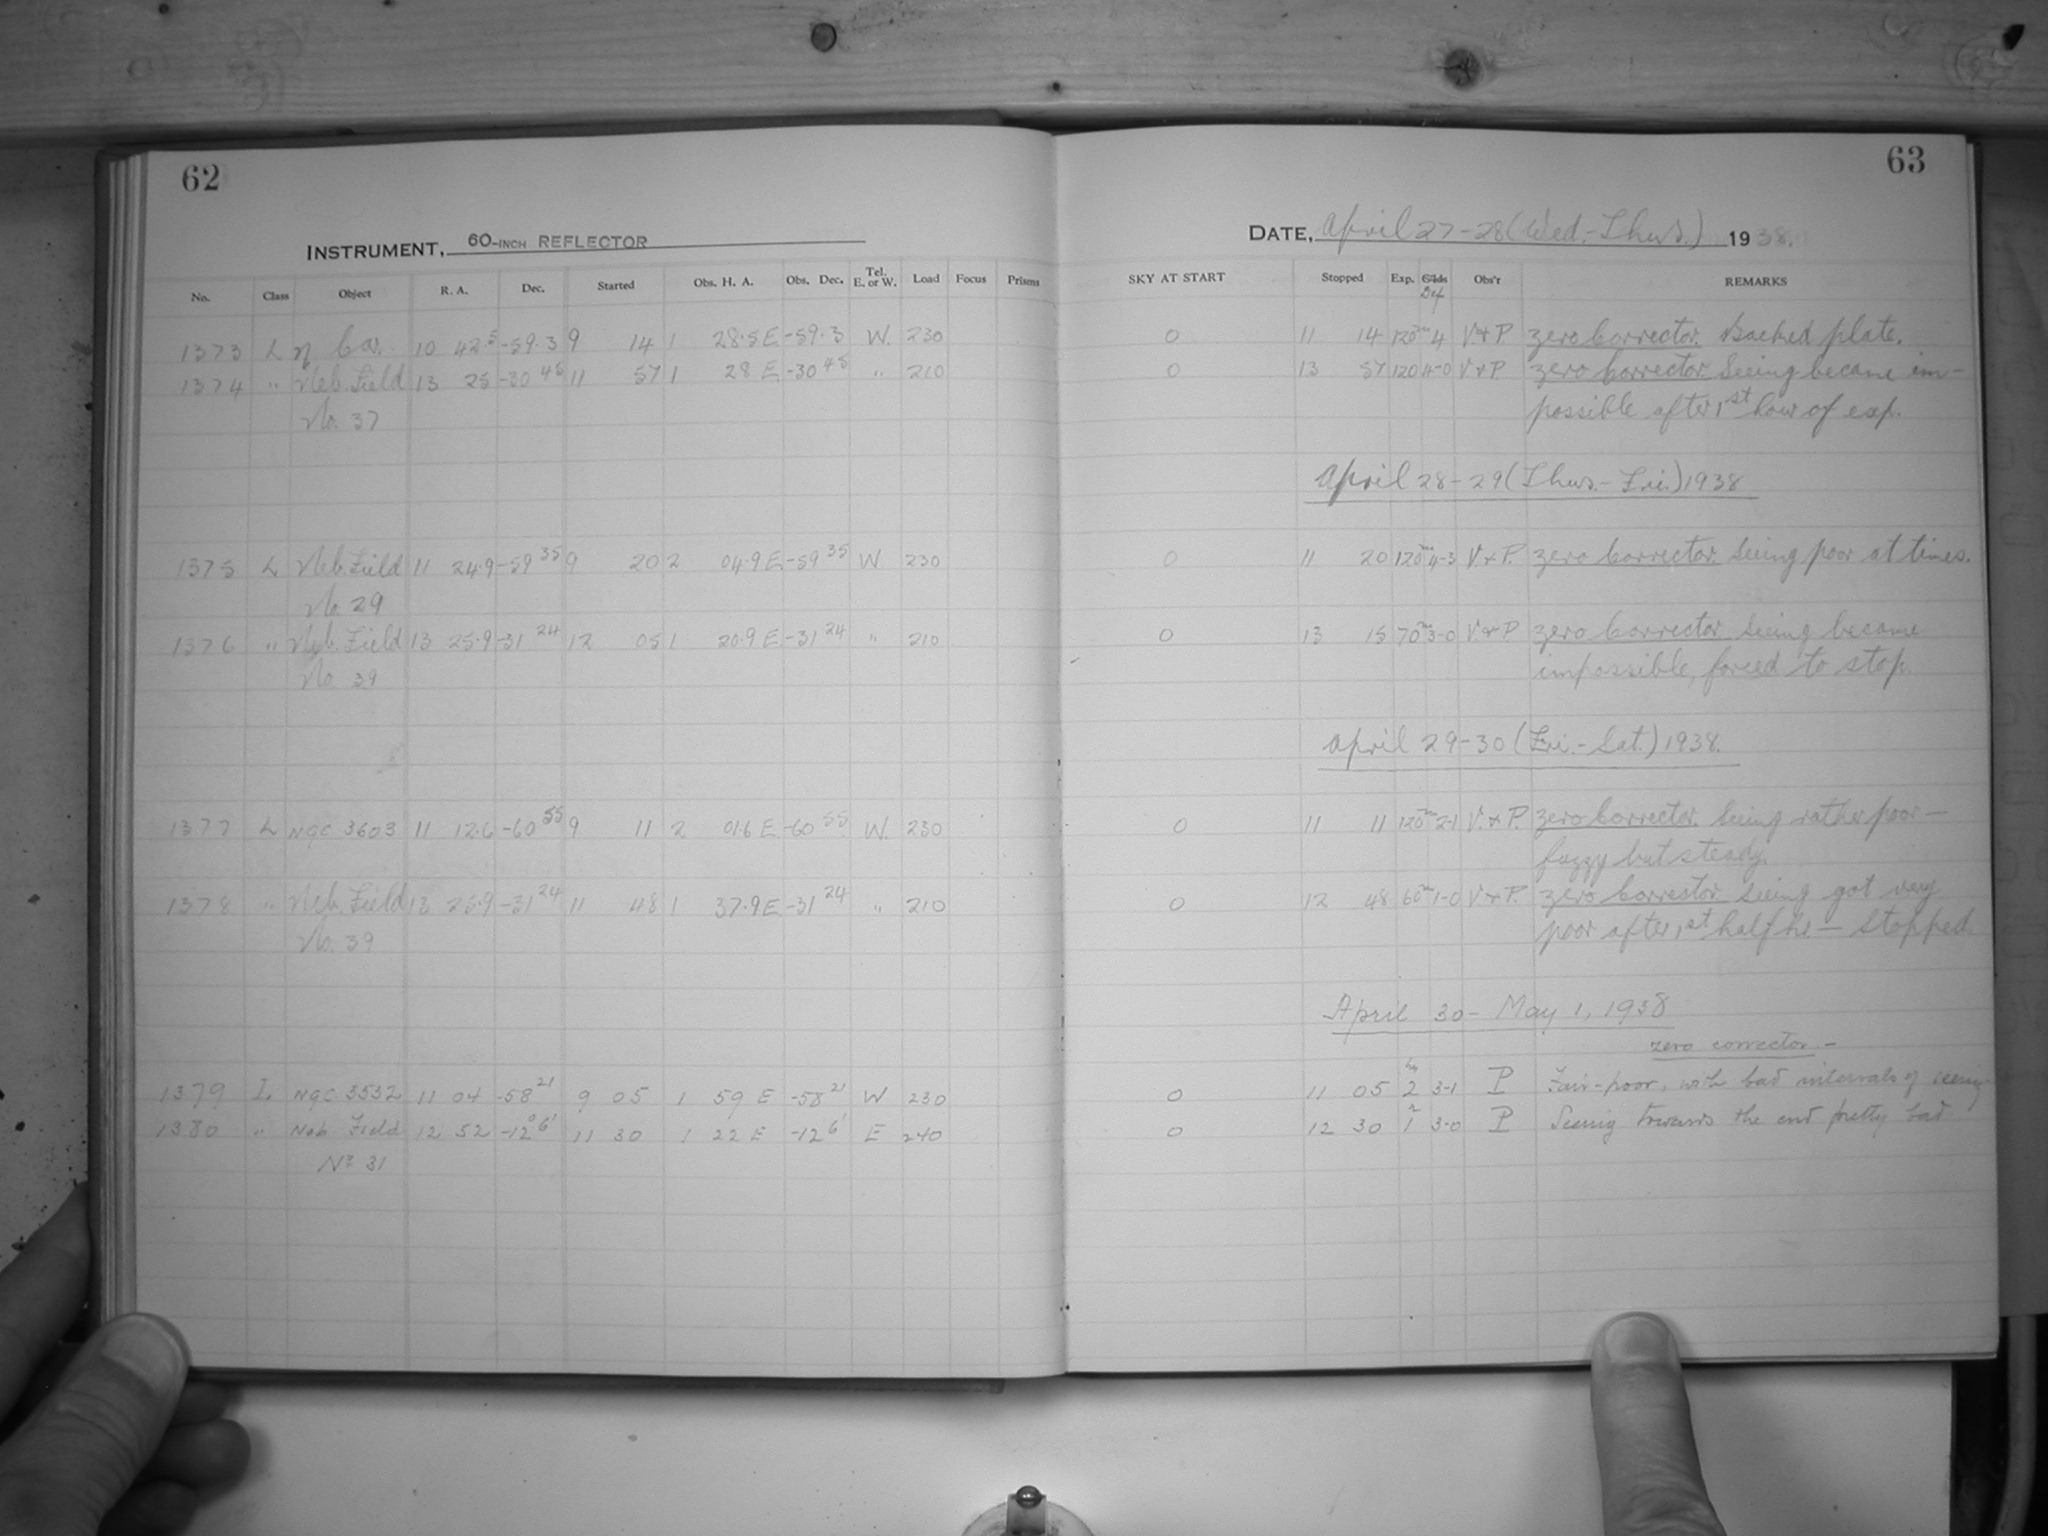 62
INSTRUMENT, 60-INCH REFLECTOR
No. Class Object R. A. Dec. Started Obs. H. A. Obs. Dec. Tel. E. or W. Load Focus Prisms
1373 L η Car. 10 42.5 -59.3 9 14 1 28.5 E -59.3 W. 230
1374 " Neb. Field 13 25 -30 45 11 57 1 28 E -30 45 " 210
No. 37
1375 L Neb. Field 11 24.9 -59 35 9 20 2 04.9 E -59 35 W 230
No. 29
1376 " Neb. Field 13 25.9 -31 24 12 05 1 20.9 E -31 24 " 210
No. 39
1377 L NGC 3603 11 12.6 -60 55 9 11 2 01.6 E -60 55 W. 230
1378 " Neb. Field 13 25.9 -31 24 11 48 1 37.9 E -31 24 " 210
No. 39
1379 L NGC 3532 11 04 -58 21 9 05 1 59 E -58 21 W 230
1380 " Neb. Field 12 52 -12° 6' 11 30 1 22 E -12 6' E 240
Nº 31
63
DATE, April 27-28 (Wed.-Thurs.) 1938.
SKY AT START Stopped Exp. Obs'r REMARKS
Def
0 11 14 120m 4 V & P zero Corrector. Backed plate.
0 13 57 120 4-0 V & P. zero Corrector. Seeing became im-
possible after 1st hour of exp.
April 28-29 (Thurs.-Fri.) 1938
0 11 20 120m 4-3 V & P. zero Corrector. Seeing poor at times.
0 13 15 70m 3-0 V & P zero Corrector. Seeing became
impossible, forced to stop.
April 29-30 (Fri.-Sat.) 1938.
0 11 11 120m 2-1 V. & P. zero Corrector. Seeing rather poor —
fuzzy but steady.
0 12 48 60m 1-0 V & P. zero Corrector. Seeing got very
poor after 1st half hr — stopped.
April 30 - May 1, 1938
zero corrector. -
0 11 05 2 3-1 P Fair-poor, with bad intervals of seeing
0 12 30 1 3-0 P Seeing towards the end pretty bad